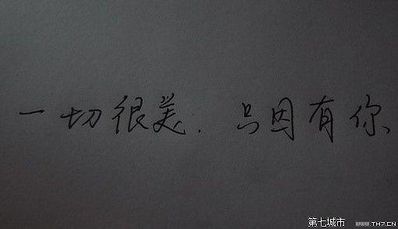 一切很美.只因有你
第七城市 www.TH7.CN